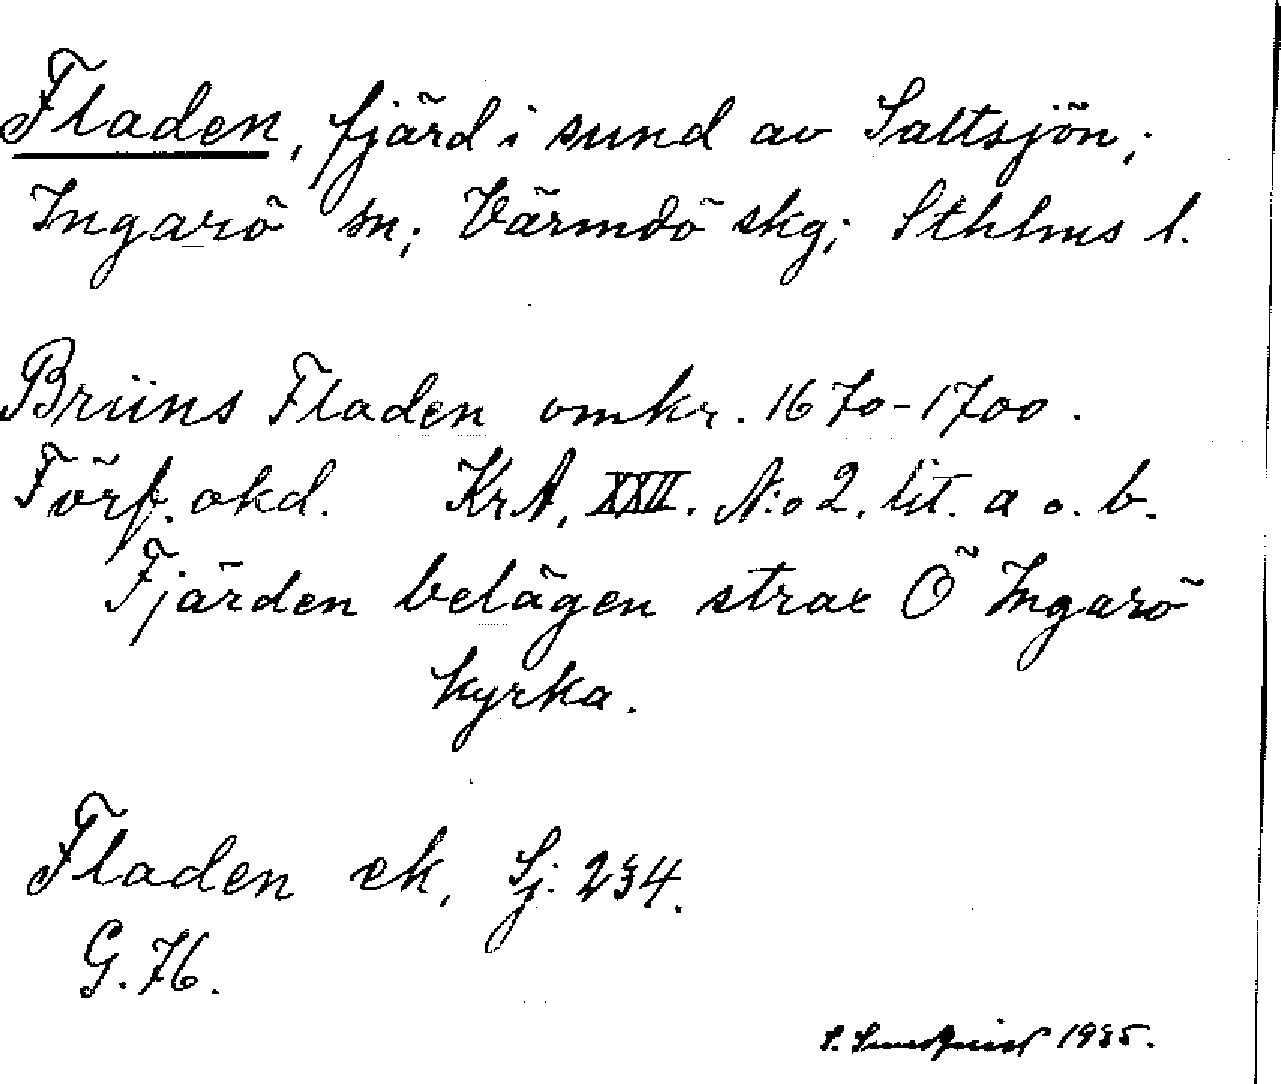 Fladen, fjärd i sund av Saltsjön;
Ingarö sn; Värmdö skg; Sthlms l.
Brüns Fladen omkr. 1670-1700.
Förf. okd. KrA, XXII. N:o 2. lit. a o. b.
Fjärden belägen strax Ö Ingarö
kyrka.
Fladen ek. Sj: 234.
G. 76.
S. Sundqvist 1935.